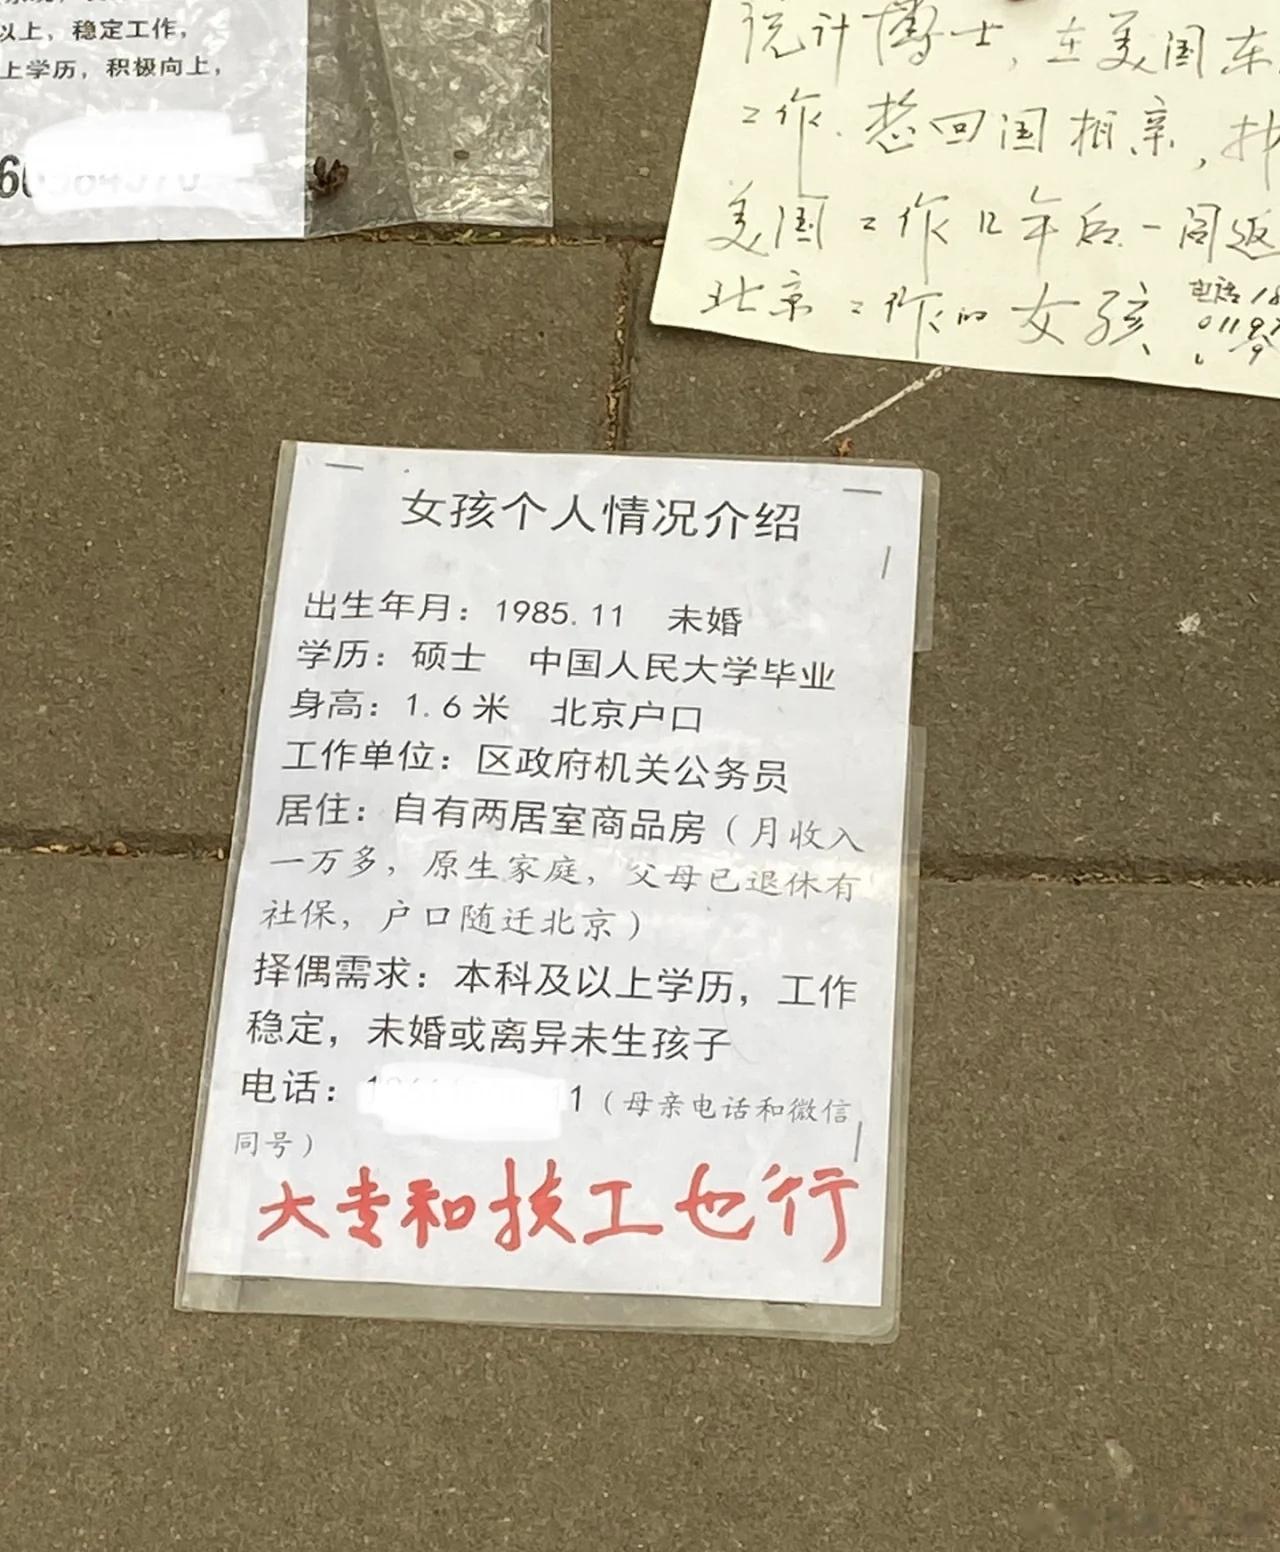 以上，稳定工作，
上学历，积极向上，
统计博士，在美国东
工作.想回国相亲，找
美国工作几年后一同返
北京工作的女孩、
电话18
女孩个人情况介绍
出生年月：1985.11 未婚
学历：硕士 中国人民大学毕业
身高：1.6米 北京户口
工作单位：区政府机关公务员
居住：自有两居室商品房（月收入
一万多，原生家庭，父母已退休有
社保，户口随迁北京）
择偶需求：本科及以上学历，工作
稳定，未婚或离异未生孩子
电话：
1（母亲电话和微信
同号）
大专和技工也行